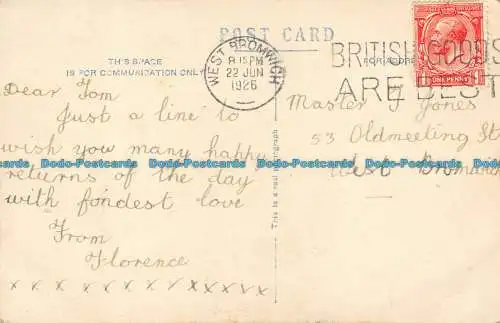 POST CARD
THIS SPACE
IS FOR COMMUNICATION ONLY
WEST BROMWICH
8.15 PM
22 JUN
1926
BRITISH GOODS
ARE BEST
ONE PENNY
Dear Tom
Just a line to
wish you many happy
returns of the day
with fondest love
From
Florence
x x x x x x x x x x x x x
This is a real photograph
Master T Jones
53 Oldmeeting St
West Bromwich
Dodo-Postcards Dodo-Postcards Dodo-Postcards Dodo-Postcards Dodo-Postcards